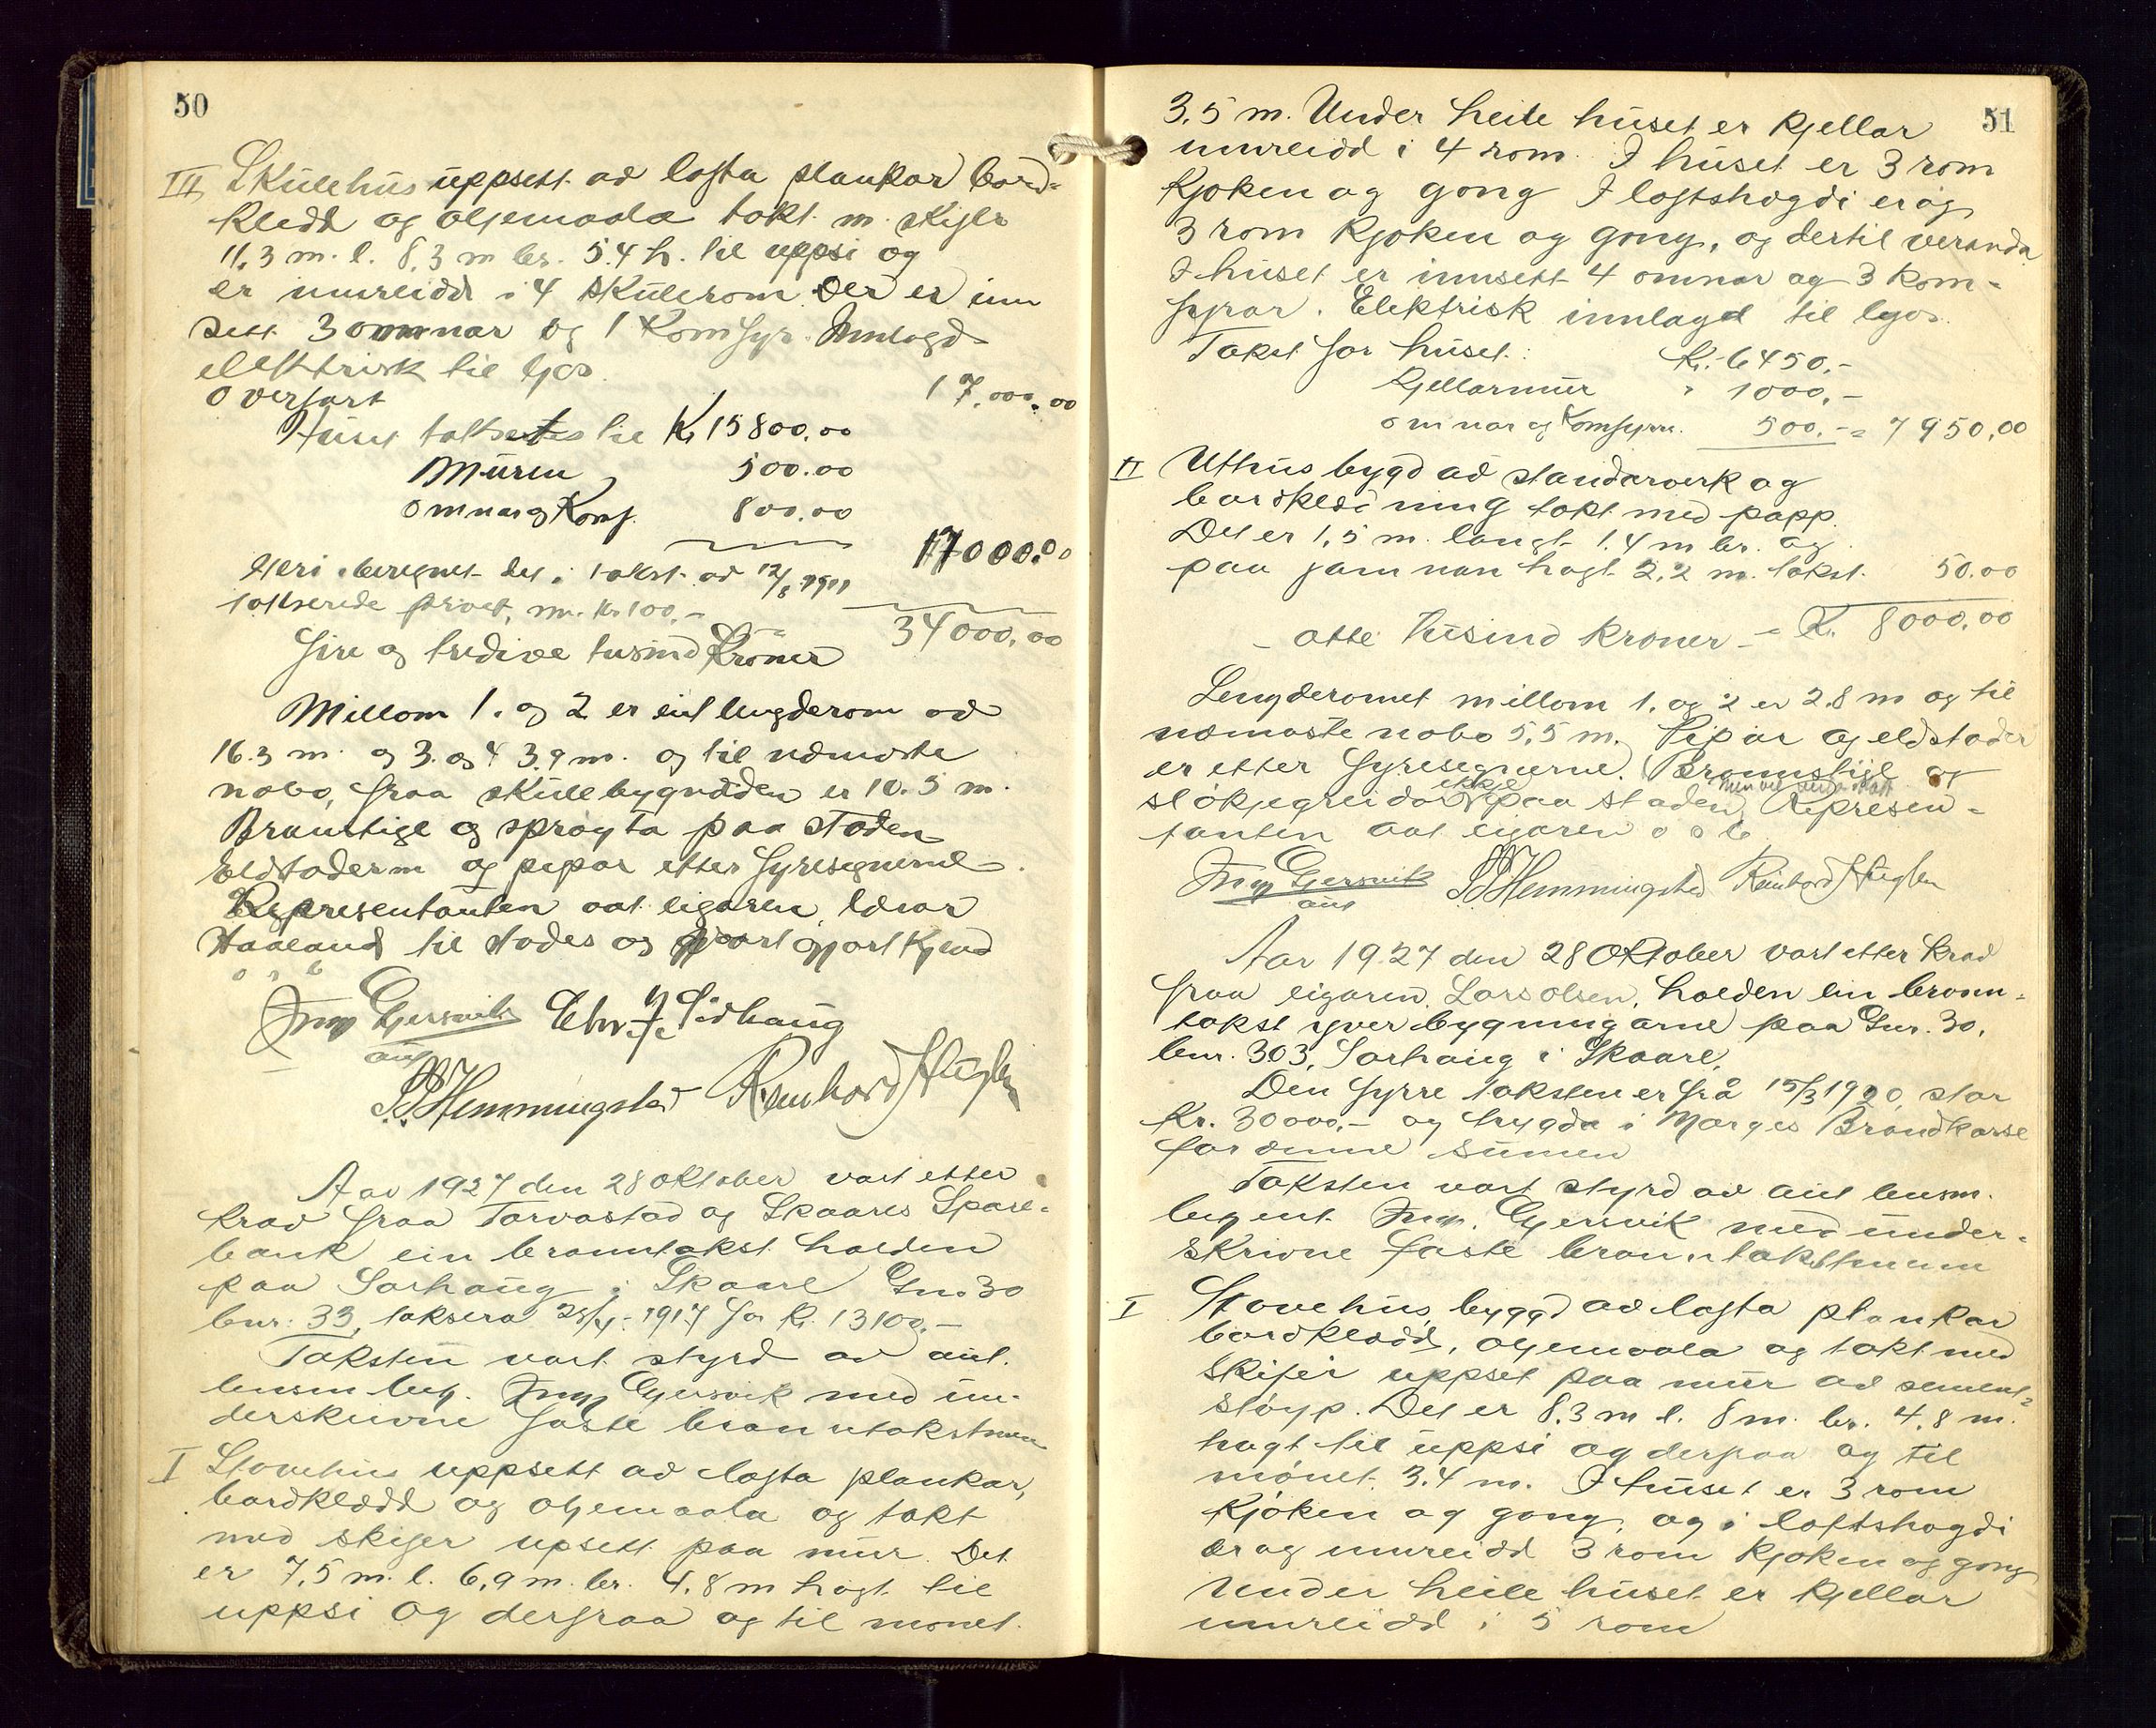 50
III Skulehus uppsett av lafta plankar bord-
kledd og oljemaala tekt m. skifer
11.3 m. l. 8.3 m br. 5.4 h. til uppsi og
er innreidd i 4 skulerom. Der er inn
sett 3 omnar og 1 Komfyr. Innlagd
elektrisk til ljos.
Overført 17.000.00
Huset takseres til Kr 15800.00
Muren 500.00
omnar og Komf. 800.00
17000.00
Heri beregnet det i takst av 12/8 1911
takserede privet, nr. Kr 100,-
34000.00
Fire og tredive tusind Kroner
Millom 1. og 2 er eit lengderom av
16.3 m. og 3. og 4 3.9 m. og til næmaste
nabo, fraa skulebygnaden er 10.5 m.
Brannstige og sprøyta paa staden
Eldstaderne og pipar etter fyresegnerne.
Representanten aat eigaren, Lærar
Haaland til stades og gjort kjend
o s b
Ing Gjersvik Chr. Sørhaug
aut
S.S. Hemmingstad Reinhard Huglen
Aar 1927 den 28 oktober vart etter
krav fraa Torvastad og Skaares Spare-
bank ein branntakst halden
paa Sørhaug i Skaare Gnr 30
bnr: 33, taksera 23/4-1917 for Kr. 13100,-
Taksten vart styrd av aut.
lensm betj. Ing Gjersvik med un-
derskrivne faste branntakstmenn
I Stovehus uppsett av lafta plankar,
bordklædd og oljemaala og tekt
med skifer upsett paa mur. Det
er 7,5 m. l. 6,9 m. br. 4,8 m høgt til
uppsi og derfraa og til mønet.
51
3.5 m. Under heile huset er kjellar
innreidd i 4 rom. I huset er 3 rom
kjøken og gong I loftshøgdi er og
3 rom kjøken og gong, og dertil veranda
I huset er innsett 4 omnar og 3 kom-
fyrar. Elektrisk innlagd til ljos.
Takst for huset: Kr. 6450,-
Kjellarmur " 1000,-
omnar og Komfyrar. 500,- = 7950,00
II Uthus bygd av standarverk og
bordkledning tekt med papp.
Det er 1,5 m. langt 1.4 m br. og
paa jamnen høgt 2,2 m. takst. 50.00
- Otte tusind kroner - = Kr. 8000,00
Lengderomet millom 1. og 2 er 2.8 m og til
næmaste nabo 5,5 m. Pipar og eldstader
er etter fyresegnerne. Brannstige og
sløkjegreidar ikkje paa staden, Represen-
tanten aat eigaren o s b
Ing Gjersvik S.S. Hemmingstad Reinhard Huglen
aut
Aar 1927 den 28 Oktober vart etter krav
fraa eigaren, Lars Olsen, halden ein brann-
takst yver bygningarne paa Gnr. 30,
bnr. 303, Sørhaug i Skaare.
Den fyrre taksten er frå 15/3 1920, stor
Kr. 30000,- og trygda i Norges Brandkasse
for denne sumen
Taksten vart styrd av aut lensm.
betjent. Ing. Gjersvik med under-
skrivne faste branntakstmenn
I Stovehus, byggd av lafta plankar
bordklædd, oljemaala og tekt med
skifer uppset paa mur av sement-
støyp. Det er 8.3 m l. 8 m. br. 4.8 m.
høgt til uppsi og derfraa og til
mønet. 3.4 m. I huset er 3 rom
kjøken og gong, og i loftshøgdi
er og innreidd 3 rom kjøken og gong
Under heile huset er kjellar
innreidd i 5 rom